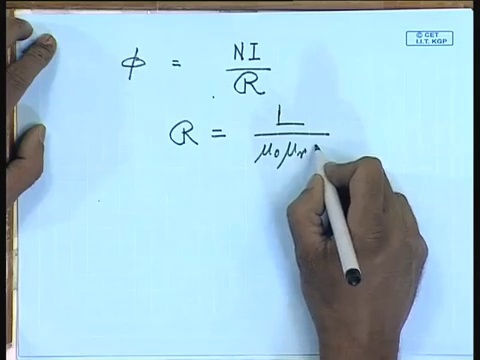 © CET
I.I.T. KGP
ϕ = NI / R
R = L / μ₀μᵣ